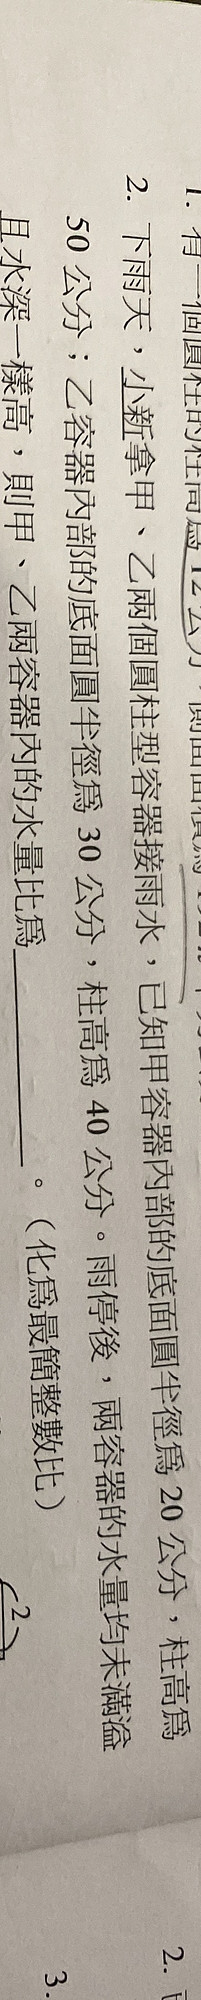 1. 有一個圓柱的柱高為 12 公分，側面面積為
2. 下雨天，小新拿甲、乙兩個圓柱型容器接雨水，已知甲容器內部的底面圓半徑為 20 公分，柱高為
50 公分；乙容器內部的底面圓半徑為 30 公分，柱高為 40 公分。雨停後，兩容器的水量均未滿溢
且水深一樣高，則甲、乙兩容器內的水量比為＿＿＿＿＿＿。（化為最簡整數比）
2
2.
3.